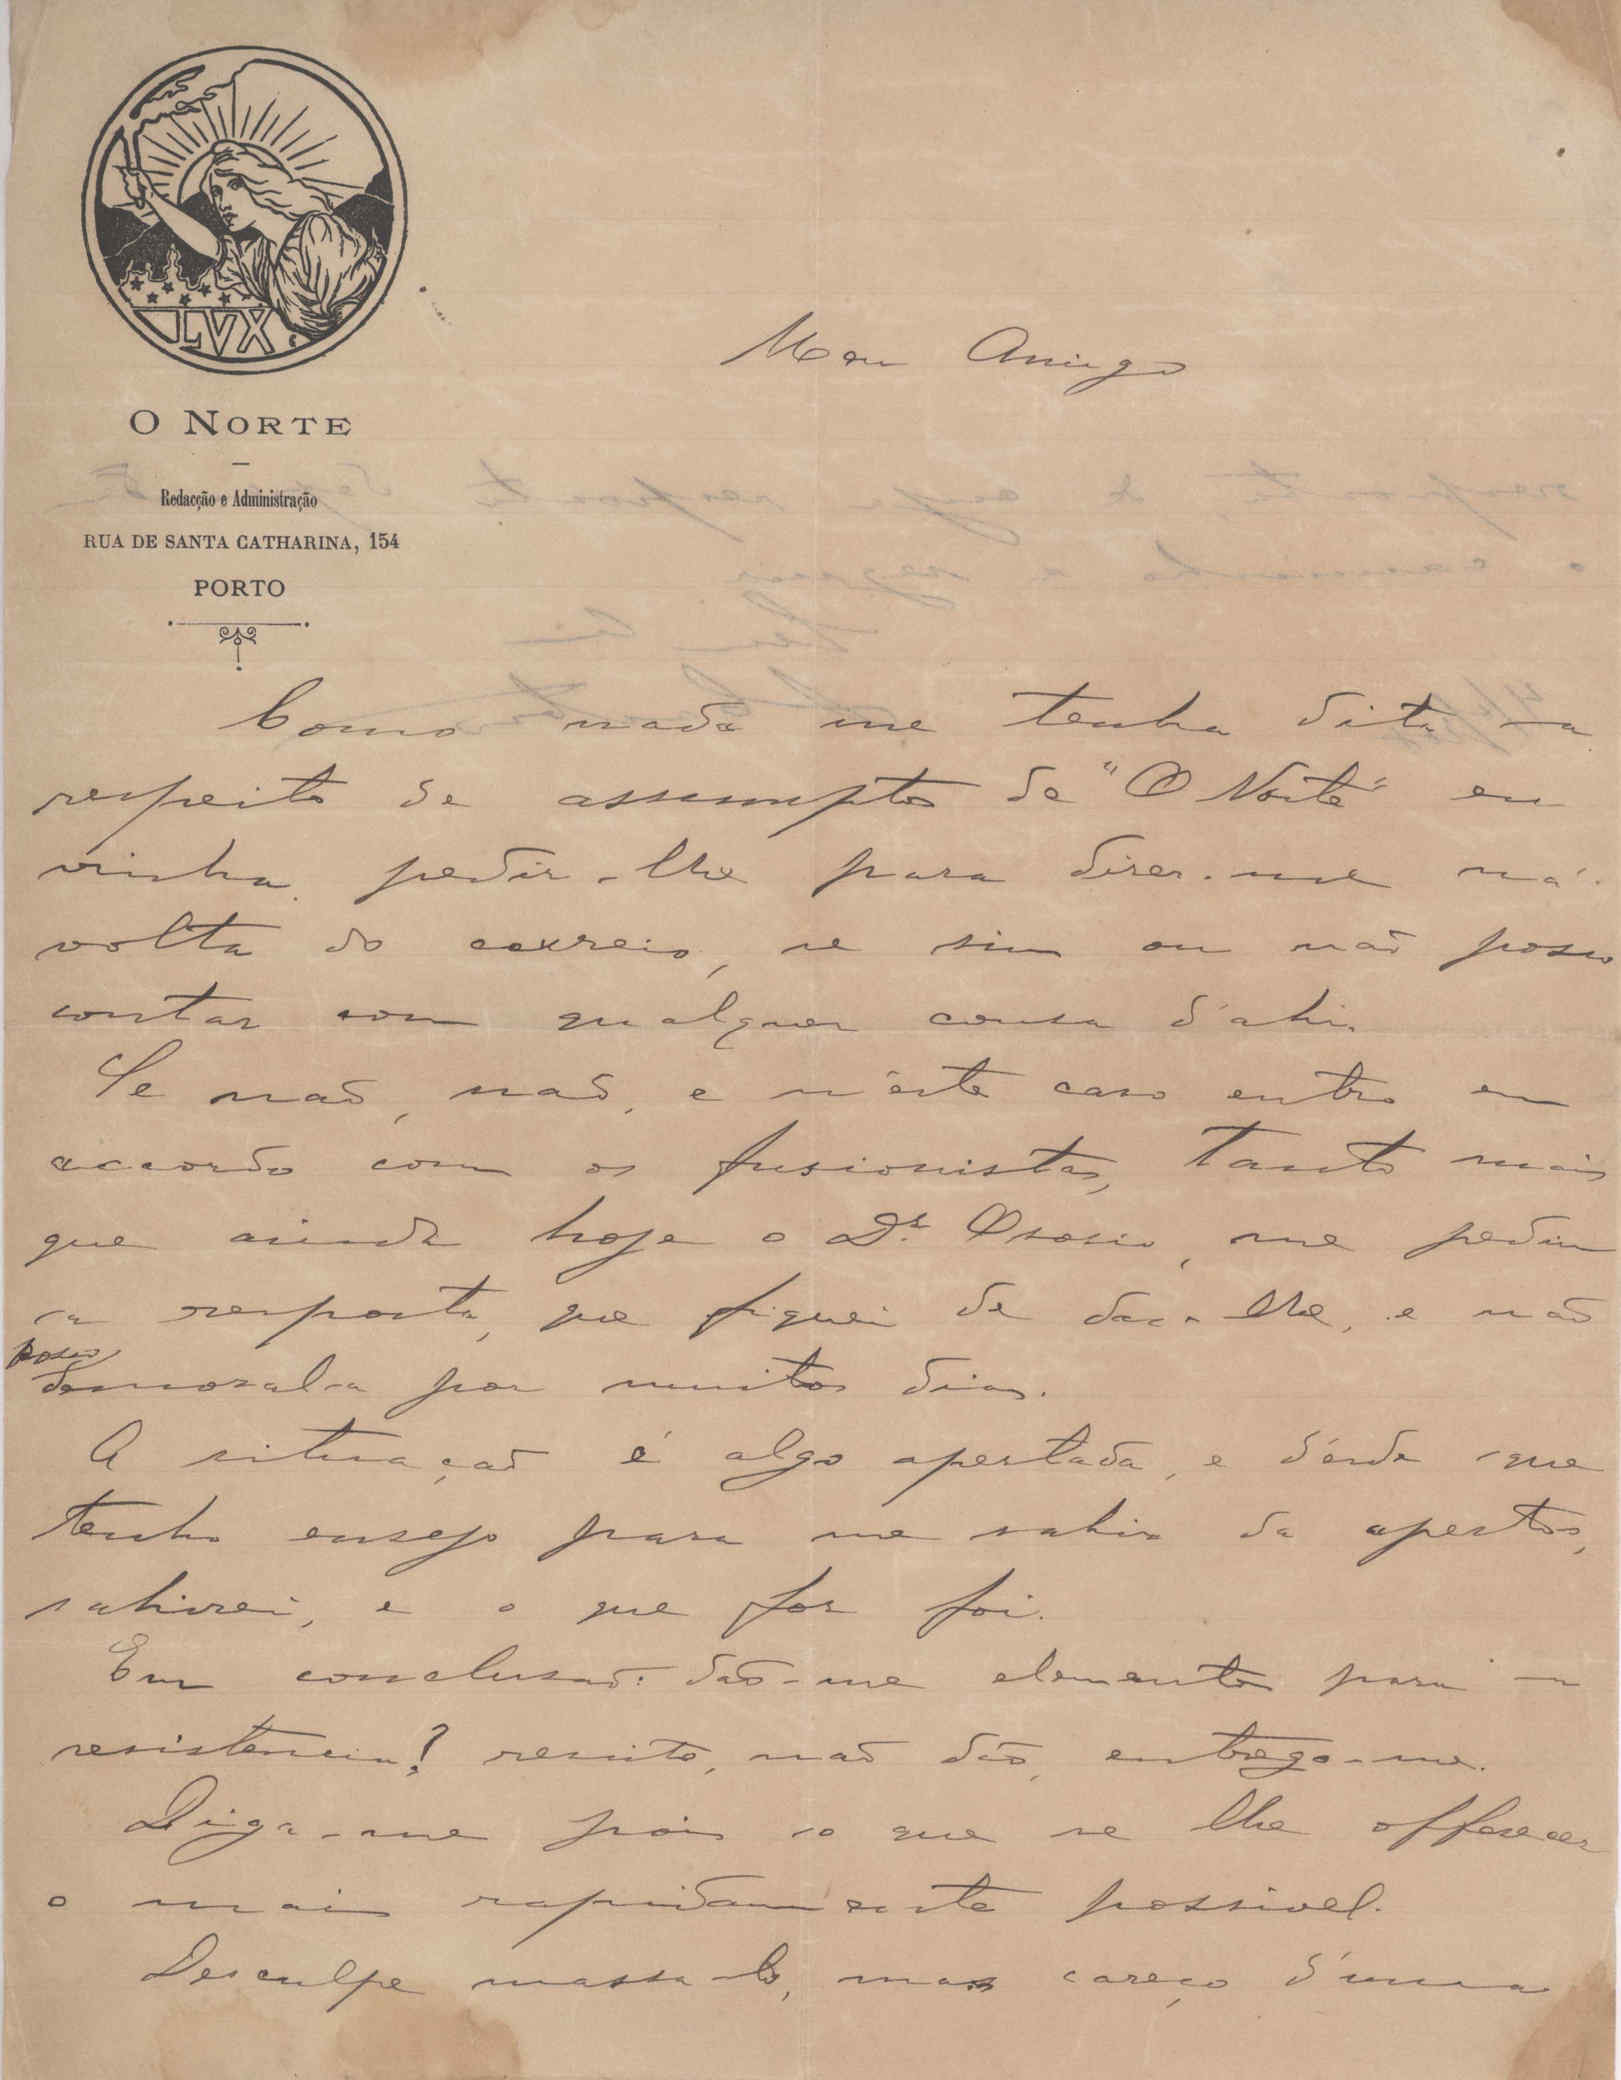 LVX
O NORTE
Redacção e Administração
RUA DE SANTA CATHARINA, 154
PORTO
Meu Amigo
Como nada me tenha dito a
respeito de assumpto de "O Norte" eu
vinha pedir-lhe para dizer-me na
volta do correio, se sim ou não posso
contar com qualquer cousa d'ahi.
Se não, não, e n'este caso entro em
accordo com os fusionistas, tanto mais
que ainda hoje o Dr. Osorio, me pediu
a resposta, que fiquei de dar-lhe, e não
posso
demoral-a por muitos dias.
A situação é algo apertada, e désde que
tenho ensejo para me sahir de apertos,
sahirei, e o que for foi.
Em conclusão: dão-me elementos para a
resistencia? resisto, não dão, entrego-me.
Diga-me pois o que se lhe offerecer
o mais rapidamente possivel.
Desculpe massal-o, mas careço d'uma